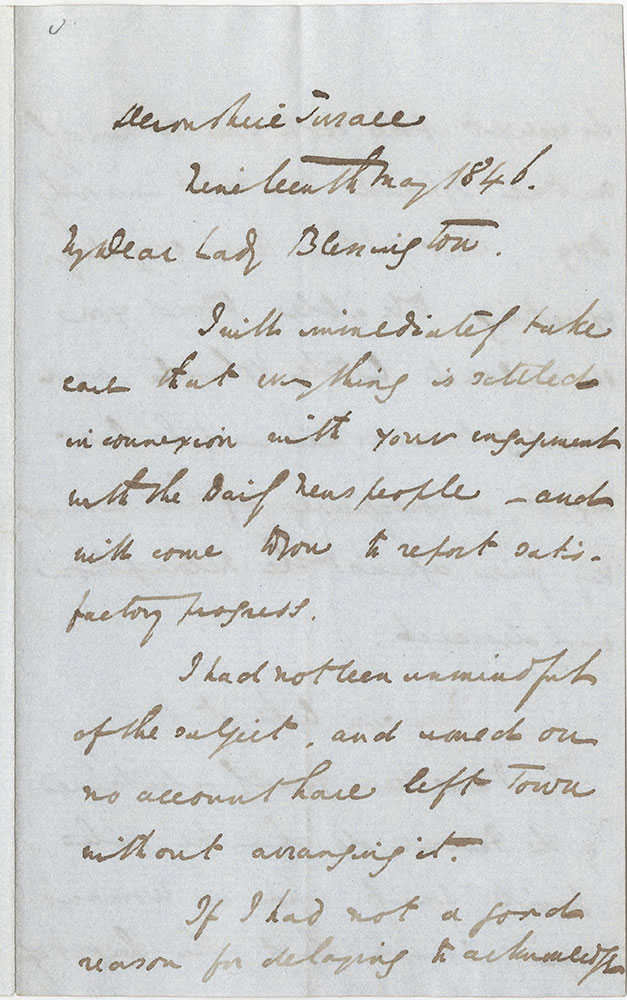 Devonshire Terrace
Nineteenth May 1846.
My Dear Lady Blessington.
I will immediately take
care that everything is settled
in connexion with your engagement
with the Daily News people – and
will come down to report satis-
factory progress.
I had not been unmindful
of the subject, and would on
no account have left Town
without arranging it.
If I had not a good
reason for delaying to acknowledge